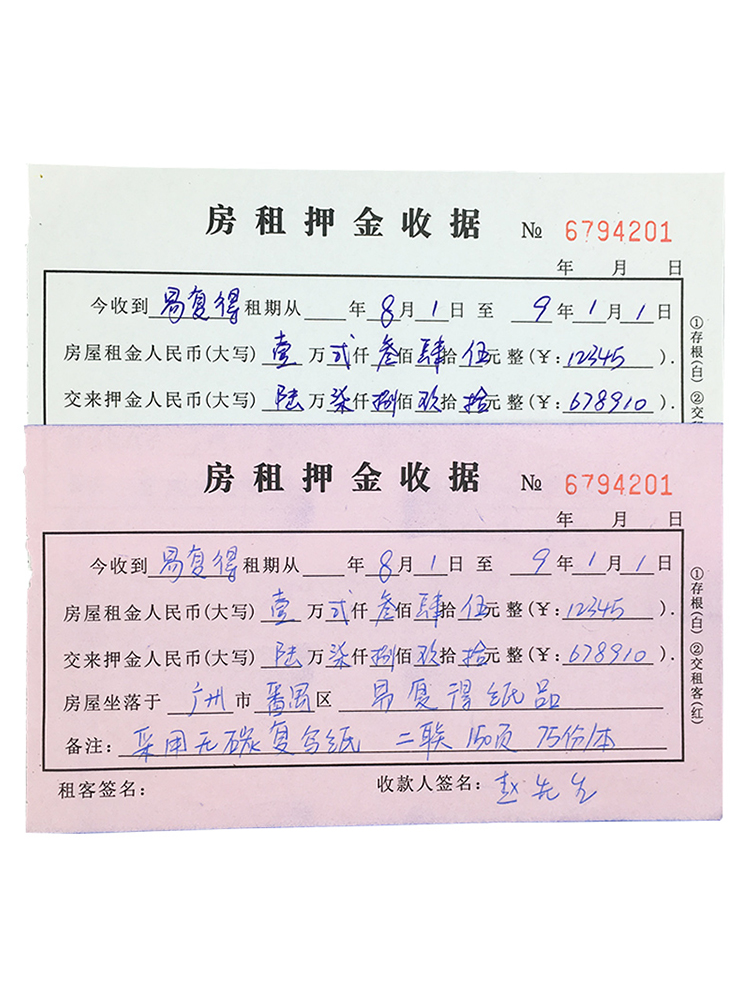 房租押金收据 № 6794201
年 月 日
今收到 易复得 租期从 年 8 月 1 日 至 9 年 1 月 1 日
房屋租金人民币(大写) 壹 万 弍 仟 叁 佰 肆 拾 伍 元 整(¥: 12345 ).
交来押金人民币(大写) 陆 万 柒 仟 捌 佰 玖 拾 拾 元 整(¥: 678910 ).
①存根(白) ②交租
房租押金收据 № 6794201
年 月 日
今收到 易复得 租期从 年 8 月 1 日 至 9 年 1 月 1 日
房屋租金人民币(大写) 壹 万 弍 仟 叁 佰 肆 拾 伍 元 整(¥: 12345 ).
交来押金人民币(大写) 陆 万 柒 仟 捌 佰 玖 拾 拾 元 整(¥: 678910 ).
房屋坐落于 广州 市 番禺 区 易复得纸品
备注: 采用无碳复写纸 二联 150页 75份/本
①存根(白) ②交租客(红)
租客签名: 收款人签名: 赵先生